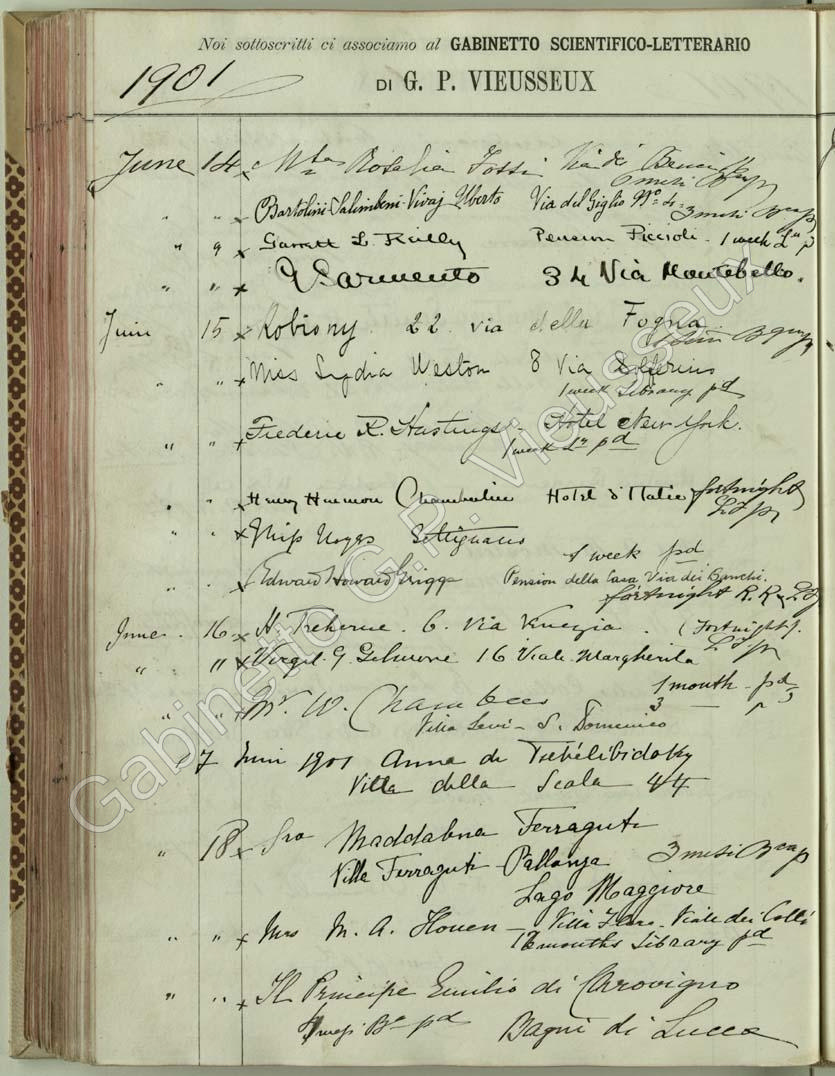 Noi sottoscritti ci associamo al GABINETTO SCIENTIFICO-LETTERARIO
1901 DI G. P. VIEUSSEUX
June 14 x Rosalia Fossi Via de' Benci
6 mesi
" " x Bartolini-Salimbeni-Vivaj Uberto Via del Giglio No 4 3 mesi
" 9 x Garrett L. Reilly Pension Piccioli. 1 week
" " x Sarmento 34 Via Montebello.
Juin 15 x Robiony. 22. via della Fogna
" " x Miss Lydia Weston 8 Via Solferino
1 week Library pd
" " x Frederic R. Hastings - Hotel New York.
1 week pd
" " x Henry Harmon Chamberlin Hotel d'Italie fortnight
" " x Miss Settignano
1 week pd
" " x Edward Howard Griggs Pension della Casa, Via dei Banchi.
fortnight R. R.
June. 16 x H. Treherne. 6. Via Venezia. (Fortnight).
" " x Virgil. G. 16 Viale Margherita
1 month - pd
" " x Mr W. Chambers 3
Villa Levi - S. Domenico
17 Juin 1901 Anna de
Villa della Scala 44
" 18 x Sra Maddalena Ferraguti
Villa Ferraguti - Pallanza 3 mesi
Lago Maggiore
" " x Mrs M. A. Villa Viale dei Colli
12 months Library pd
" " x Il Principe Emilio di Carovigno
mesi pd Bagni di Lucca
Gabinetto G.P. Vieusseux